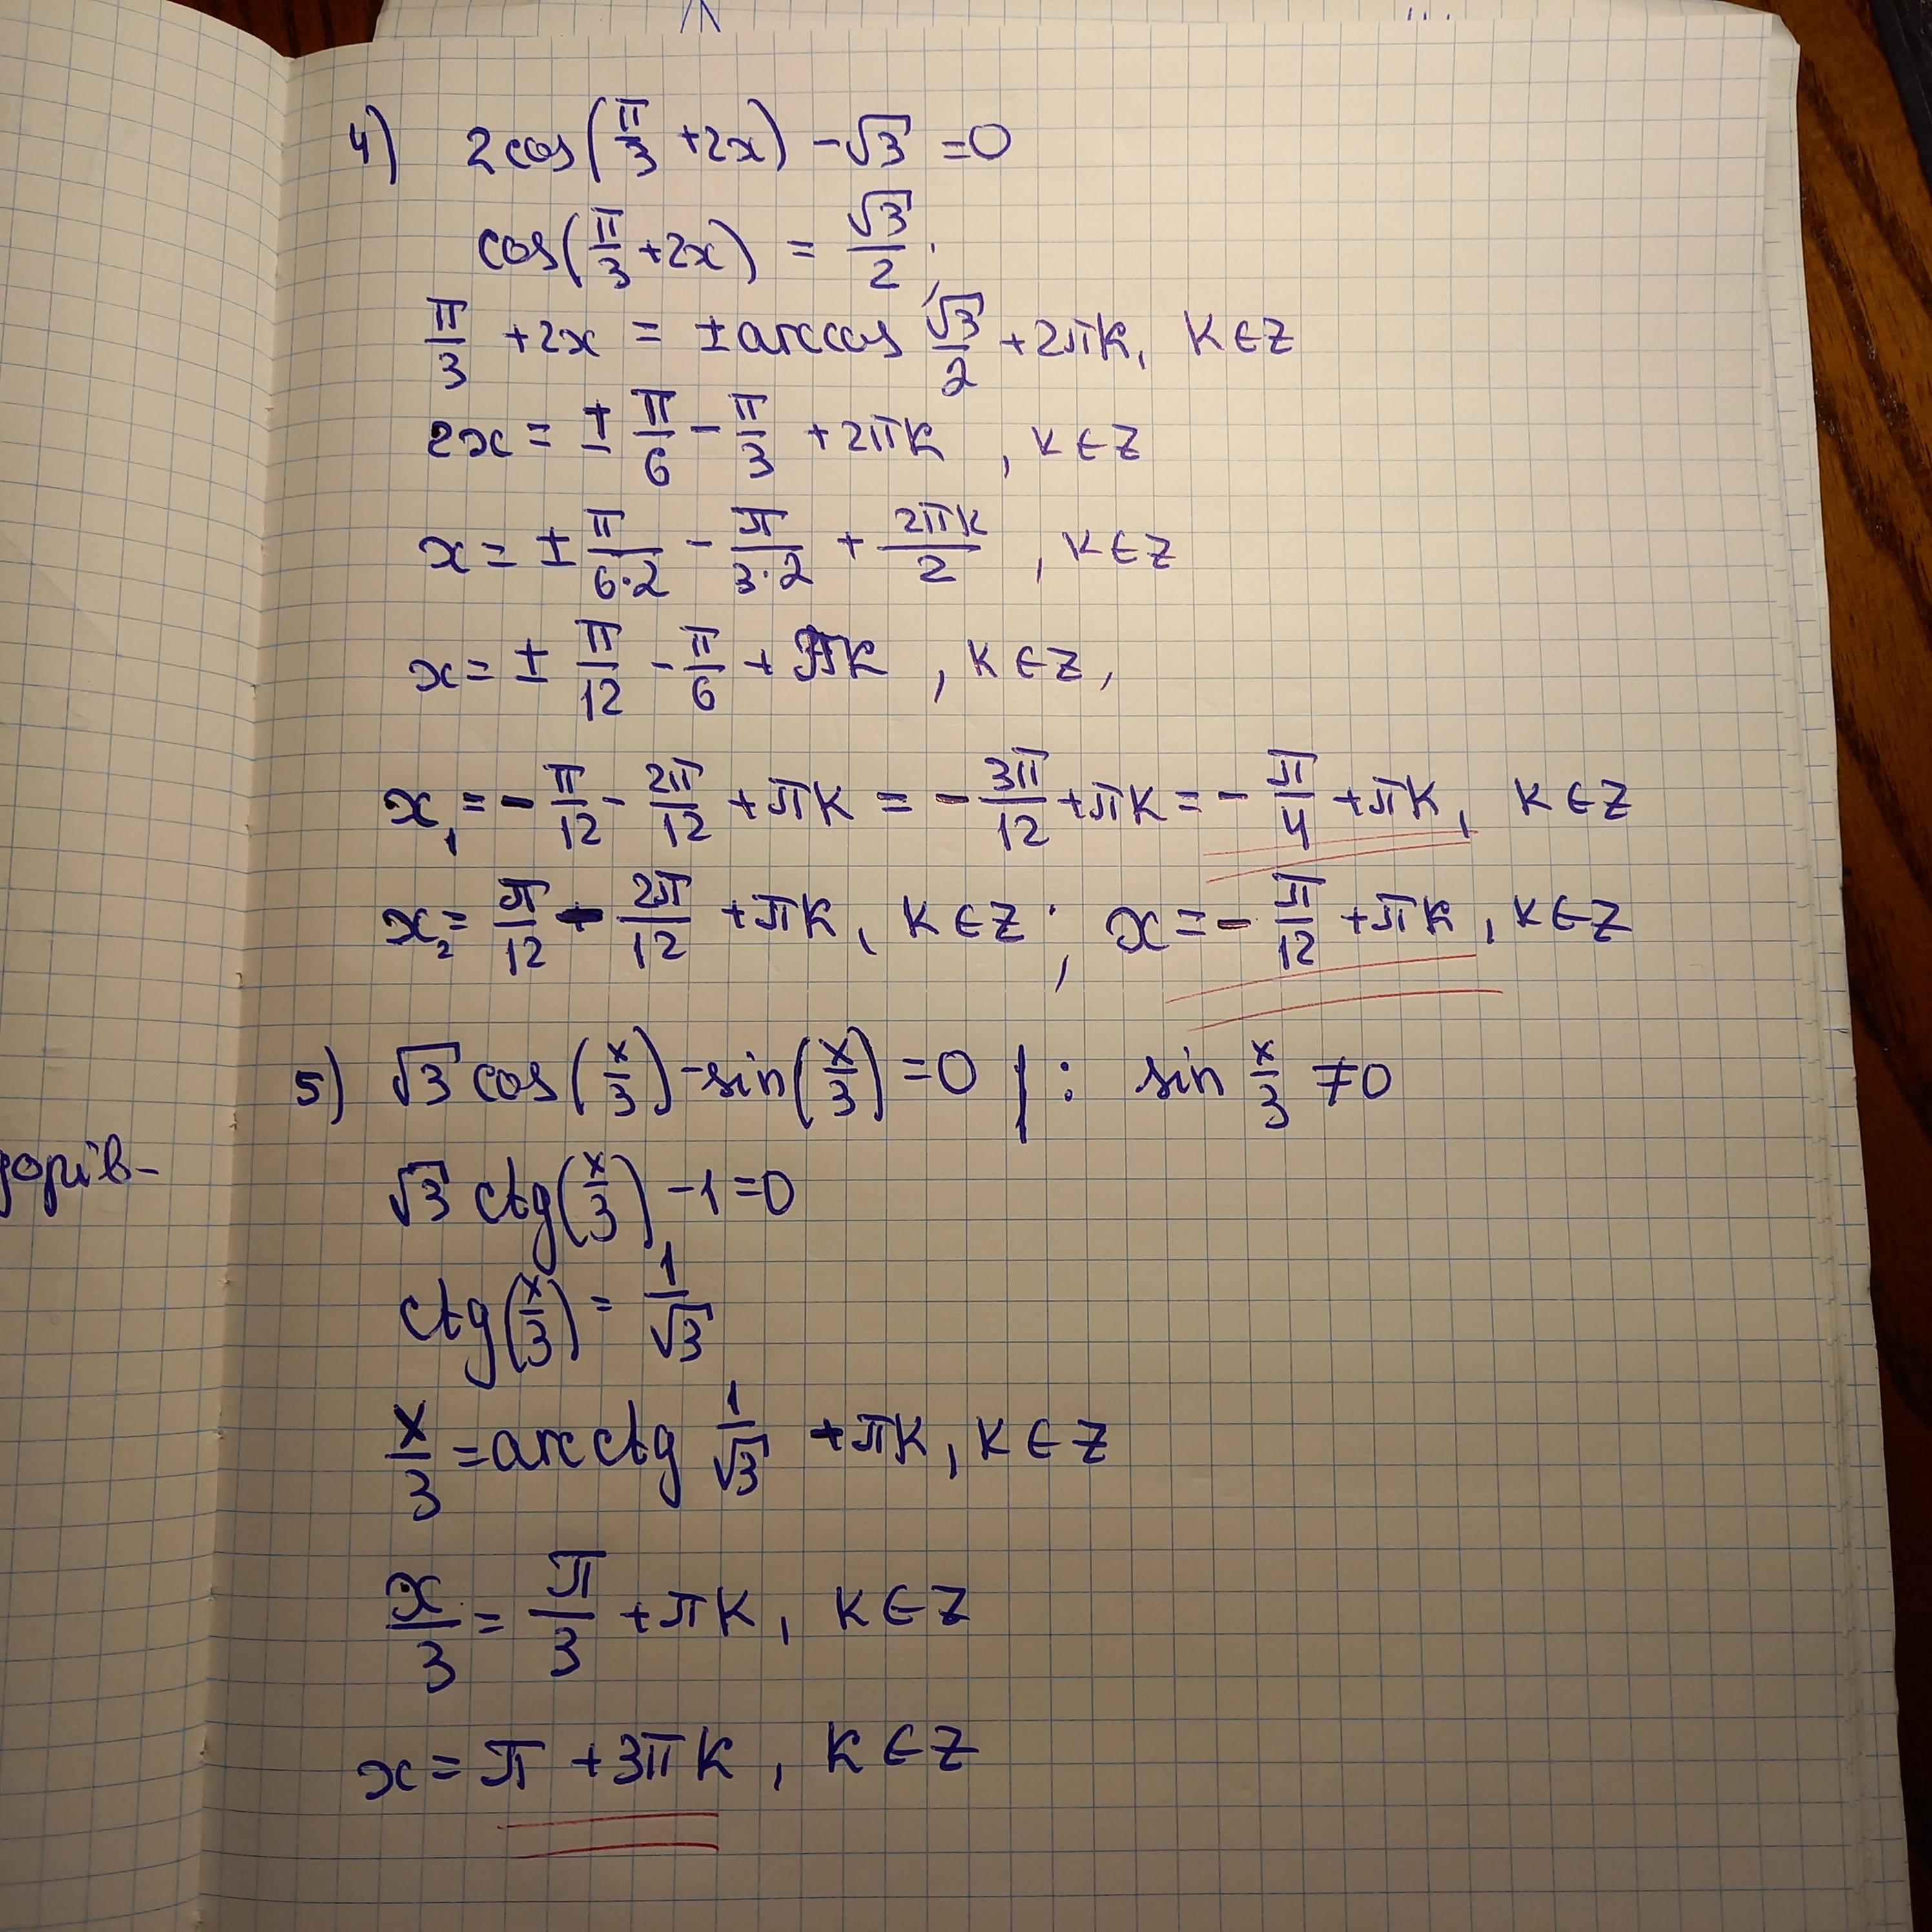 4) 2cos(π/3 +2x) -√3 =0
cos(π/3 +2x) = √3/2 ;
π/3 +2x = ±arccos √3/2 +2πk, k∈Z
2x = ± π/6 - π/3 +2πk , k∈Z
x = ± π/(6·2) - π/(3·2) + 2πk/2 , k∈Z
x = ± π/12 - π/6 + πk , k∈Z,
x₁ = - π/12 - 2π/12 +πk = - 3π/12 +πk = - π/4 +πk, k∈Z
x₂ = π/12 - 2π/12 +πk, k∈Z ; x = - π/12 +πk , k∈Z
5) √3 cos(x/3) -sin(x/3) =0 | : sin x/3 ≠0
√3 ctg(x/3) -1=0
ctg(x/3) = 1/√3
x/3 = arcctg 1/√3 +πk, k∈Z
x/3 = π/3 +πk, k∈Z
x = π +3πk , k∈Z